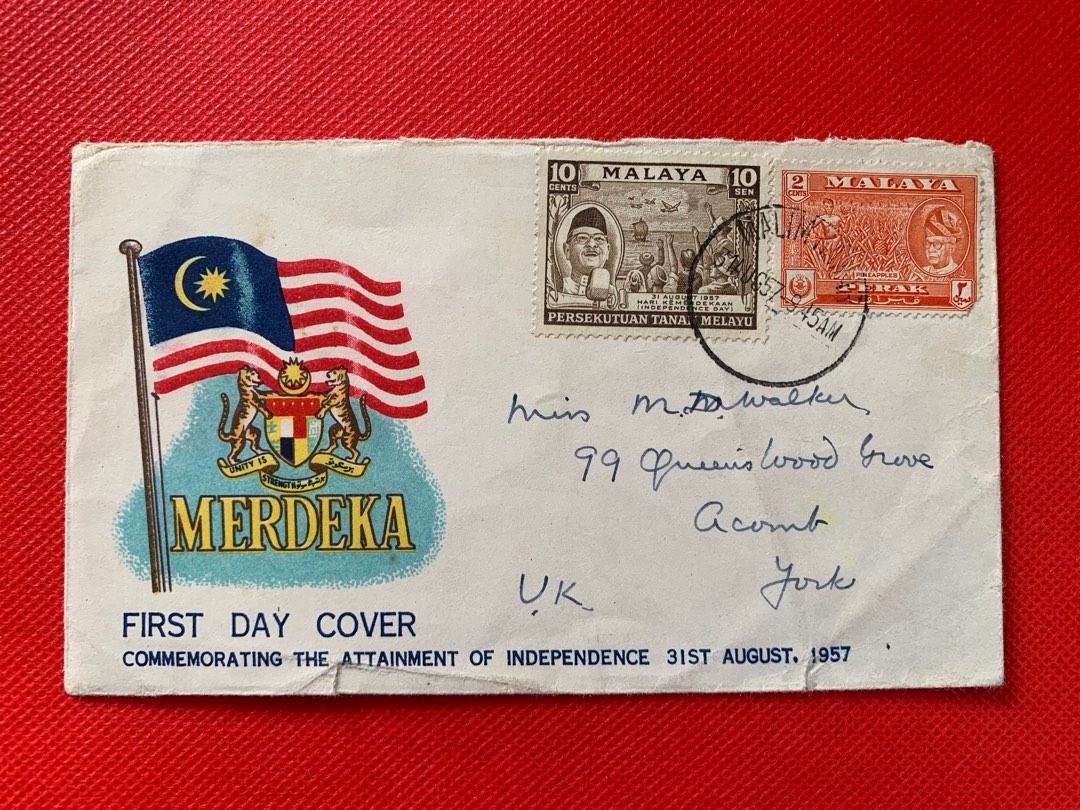 10 CENTS MALAYA 10 SEN
31 AUGUST 1957
HARI KEMERDEKAAN
(INDEPENDENCE DAY)
PERSEKUTUAN TANAH MELAYU
2 CENTS MALAYA
PINEAPPLES
PERAK ٢
9.45AM
UNITY IS
STRENGTH
MERDEKA
Miss M. Walker
99 Queenswood Grove
Acomb
York
U.K
FIRST DAY COVER
COMMEMORATING THE ATTAINMENT OF INDEPENDENCE 31ST AUGUST. 1957